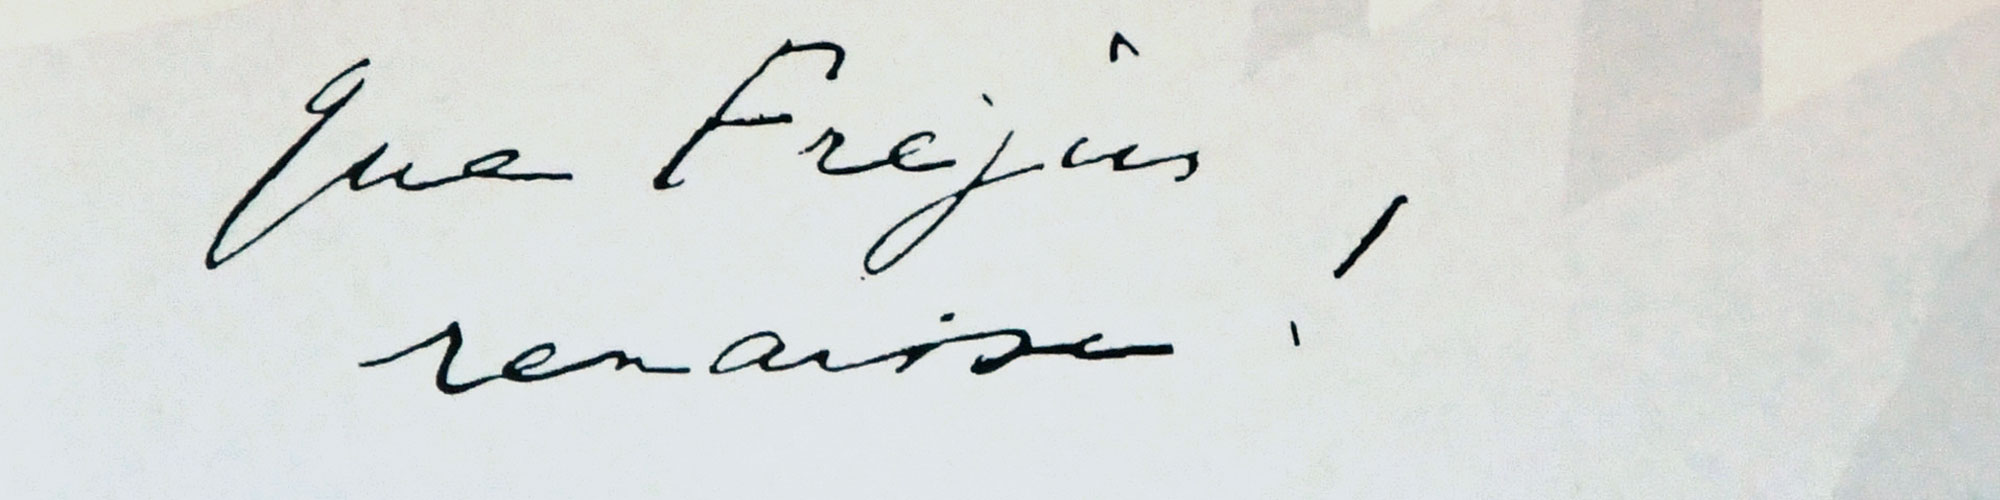 Que Fréjûs
renaisse !